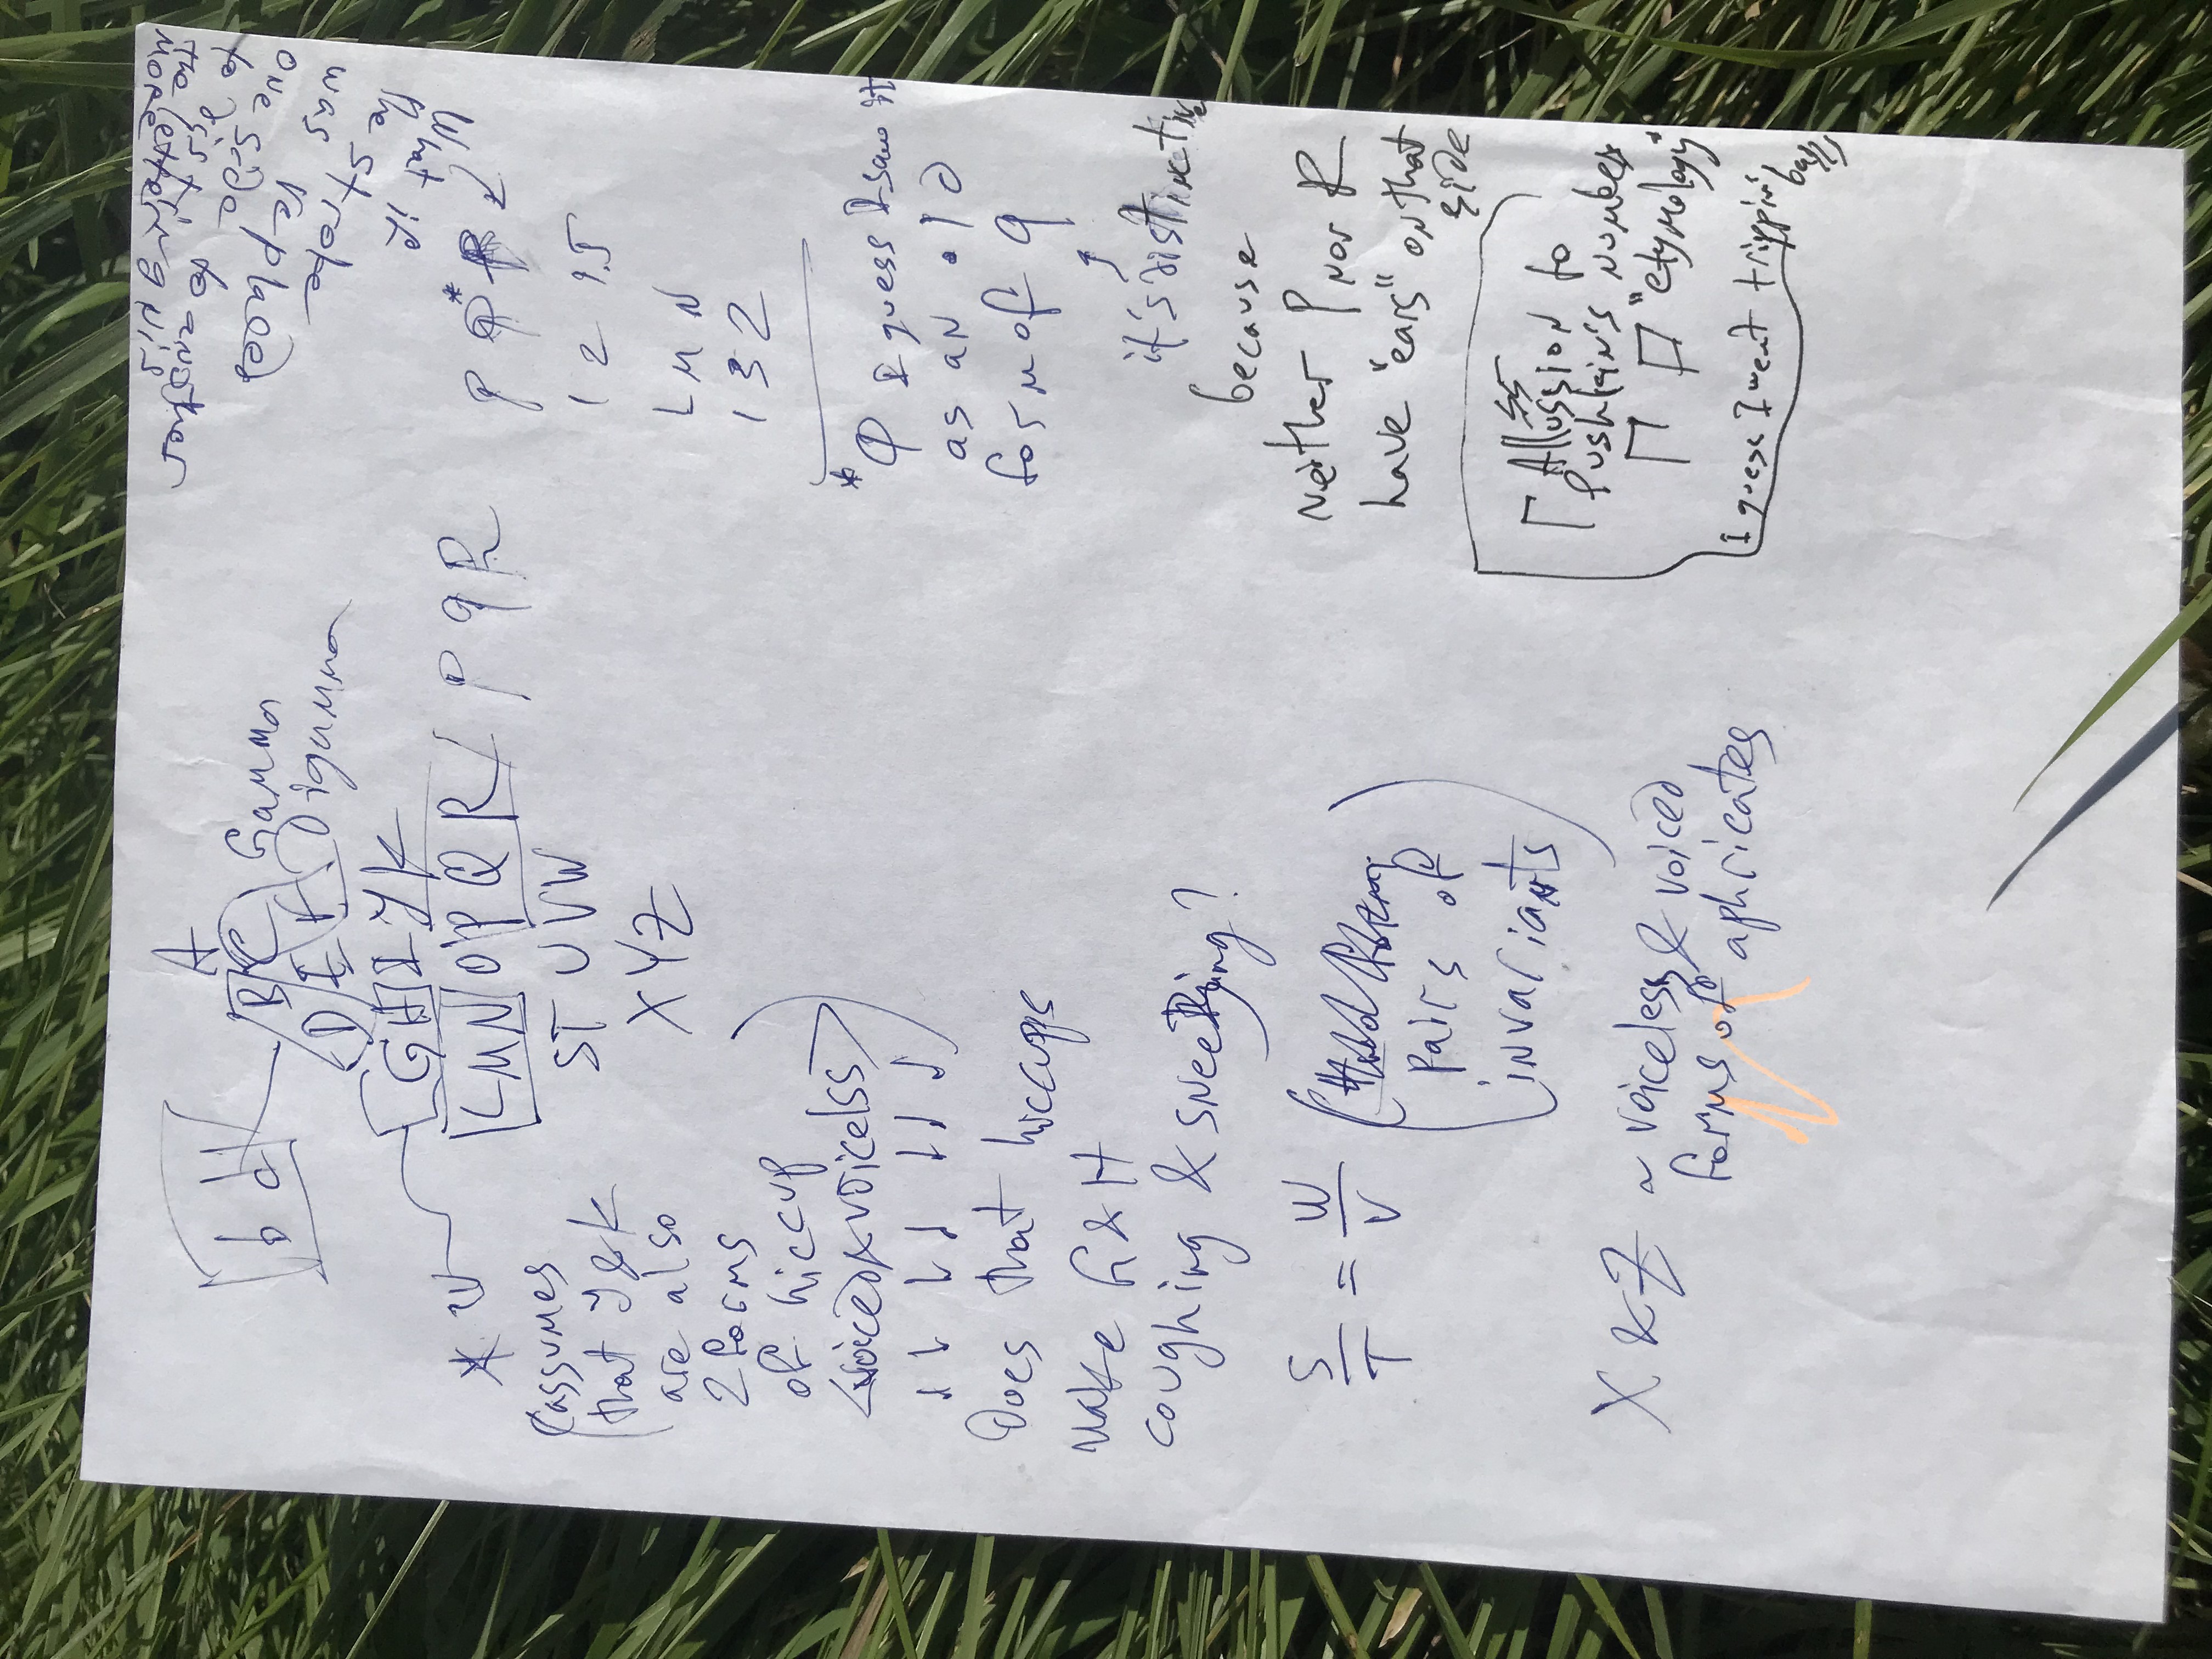 A
b d
B C Gamma
D E F Digamma
G H I J K
L M N O P Q R / P q R
S T U V W
X Y Z
(assumes
that J & K
are also
2 forms
of hiccup
<voiced & voicelss>
Does that hiccups
make G & H
coughing & sneezing?
S/T = W/V
pairs of
invariants
X & Z ~ voiceless & voiced
forms of aphricates
What if
the stroke
was replaced
one side to another
to distinguish
the letters
more
P Φ* R
1 2 1.5
L M N
1 3 2
* Φ I guess I saw it
as an old
form of q
it's distinctive
because
neither P nor R
have "ears" on that
side
Γ Allussion to
SS
Pushkin's numbers
"etymology"
I guess I went trippin'
balls